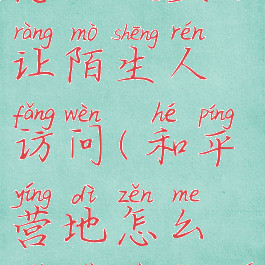 ràng mò shēng rén
让陌生人
fǎng wèn hé píng
访问(和平
yíng dì zěn me
营地怎么